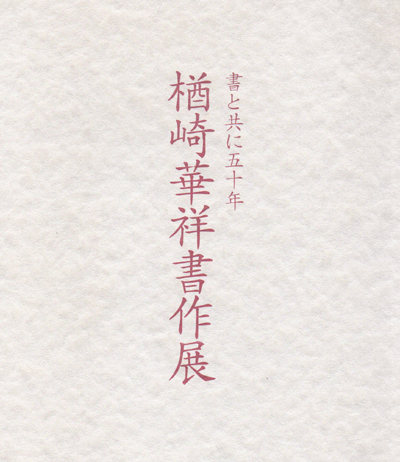 書と共に五十年
楢崎華祥書作展